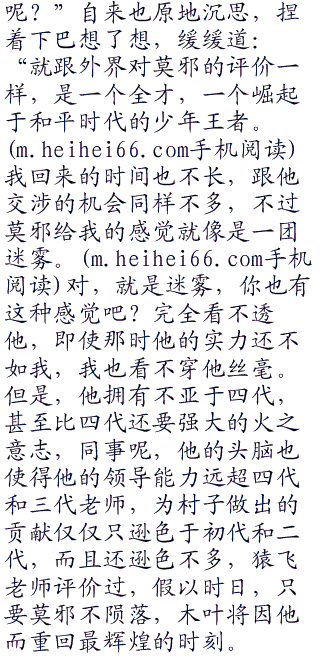 呢？”自来也原地沉思，捏
着下巴想了想，缓缓道：
“就跟外界对莫邪的评价一
样，是一个全才，一个崛起
于和平时代的少年王者。
(m.heihei66.com手机阅读)
我回来的时间也不长，跟他
交涉的机会同样不多，不过
莫邪给我的感觉就像是一团
迷雾。(m.heihei66.com手机
阅读)对，就是迷雾，你也有
这种感觉吧？完全看不透
他，即使那时他的实力还不
如我，我也看不穿他丝毫。
但是，他拥有不亚于四代，
甚至比四代还要强大的火之
意志，同事呢，他的头脑也
使得他的领导能力远超四代
和三代老师，为村子做出的
贡献仅仅只逊色于初代和二
代，而且还逊色不多，猿飞
老师评价过，假以时日，只
要莫邪不陨落，木叶将因他
而重回最辉煌的时刻。